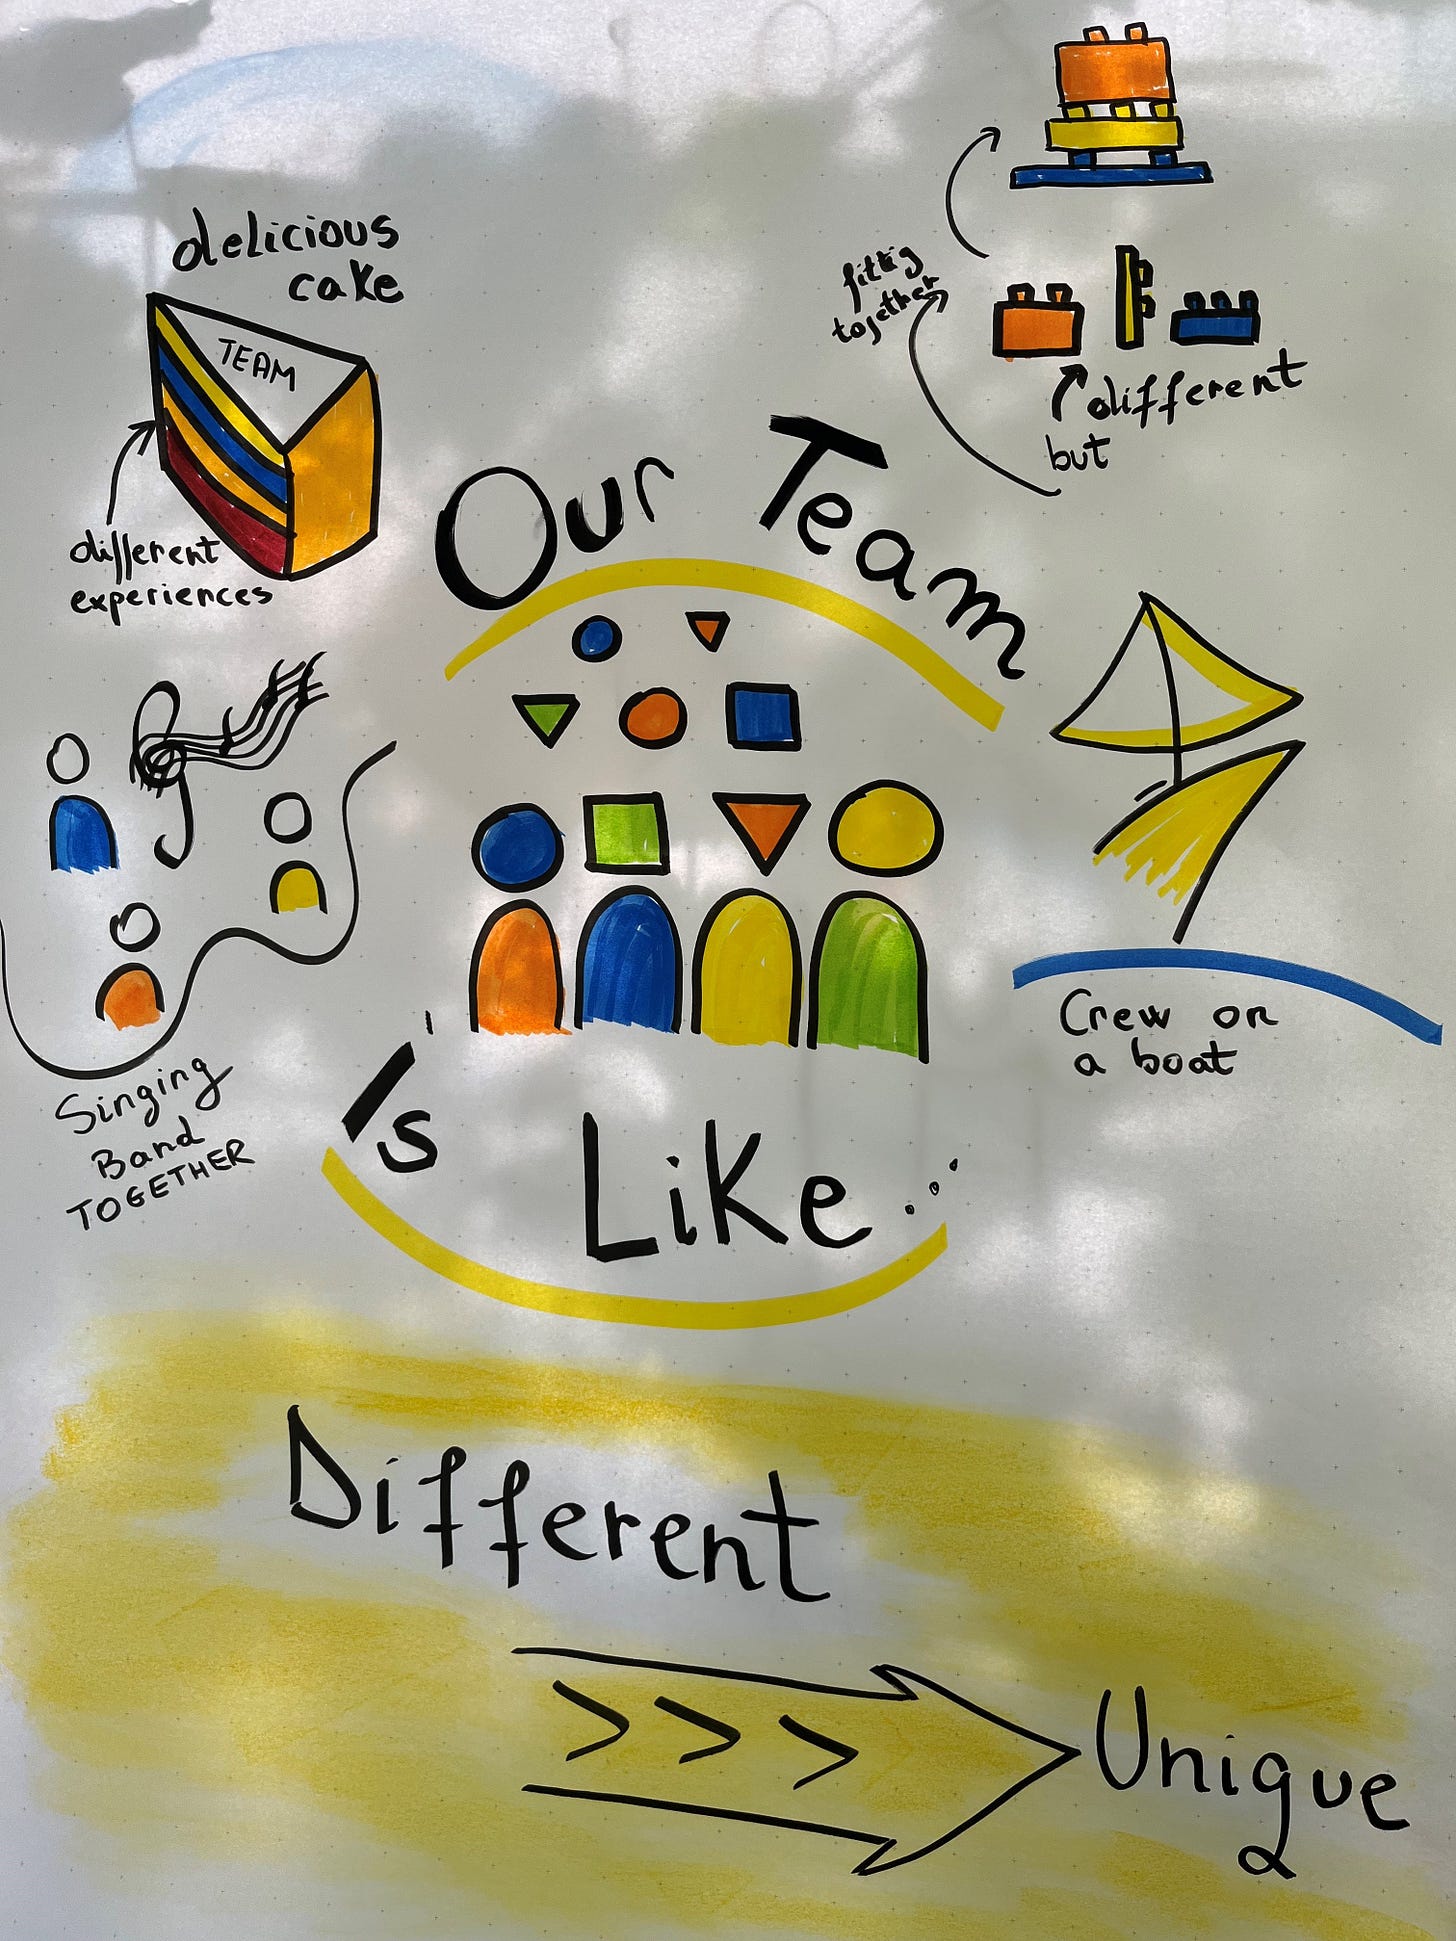 delicious
cake
TEAM
different
experiences
fittig
together
different
but
Our Team
Is Like...
Singing
Band
TOGETHER
Crew on
a boat
Different
Unique